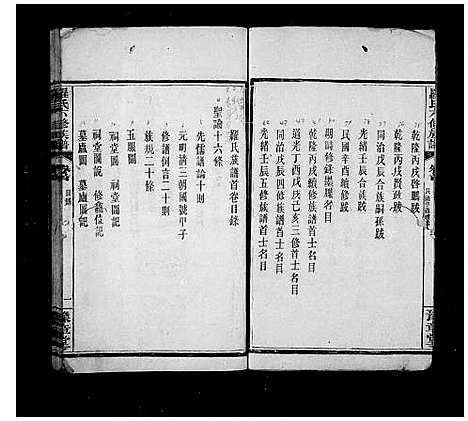 羅氏六修族譜
乾隆丙戌啓鵬跋
乾隆丙戌賢跋
同治戊辰合族嗣孫跋
光緒壬辰跋
民國辛酉續修跋
明時修錄墨譜名目
乾隆丙戌續修族譜首士名目
道光丁酉戊戌己亥三修首士名目
同治戊辰四修族譜首士名目
光緒壬辰五修族譜首士名目
羅氏六修族譜
目錄
一
豫章堂
羅氏族譜首卷目錄
聖諭十六條
先儒譜論十則
元明清三朝國號甲子
修譜例言二十則
族規二十條
五服圖
祠堂圖說 祠堂圖記
祠堂圖說 修龕位記
墓廬圖 墓廬圖記